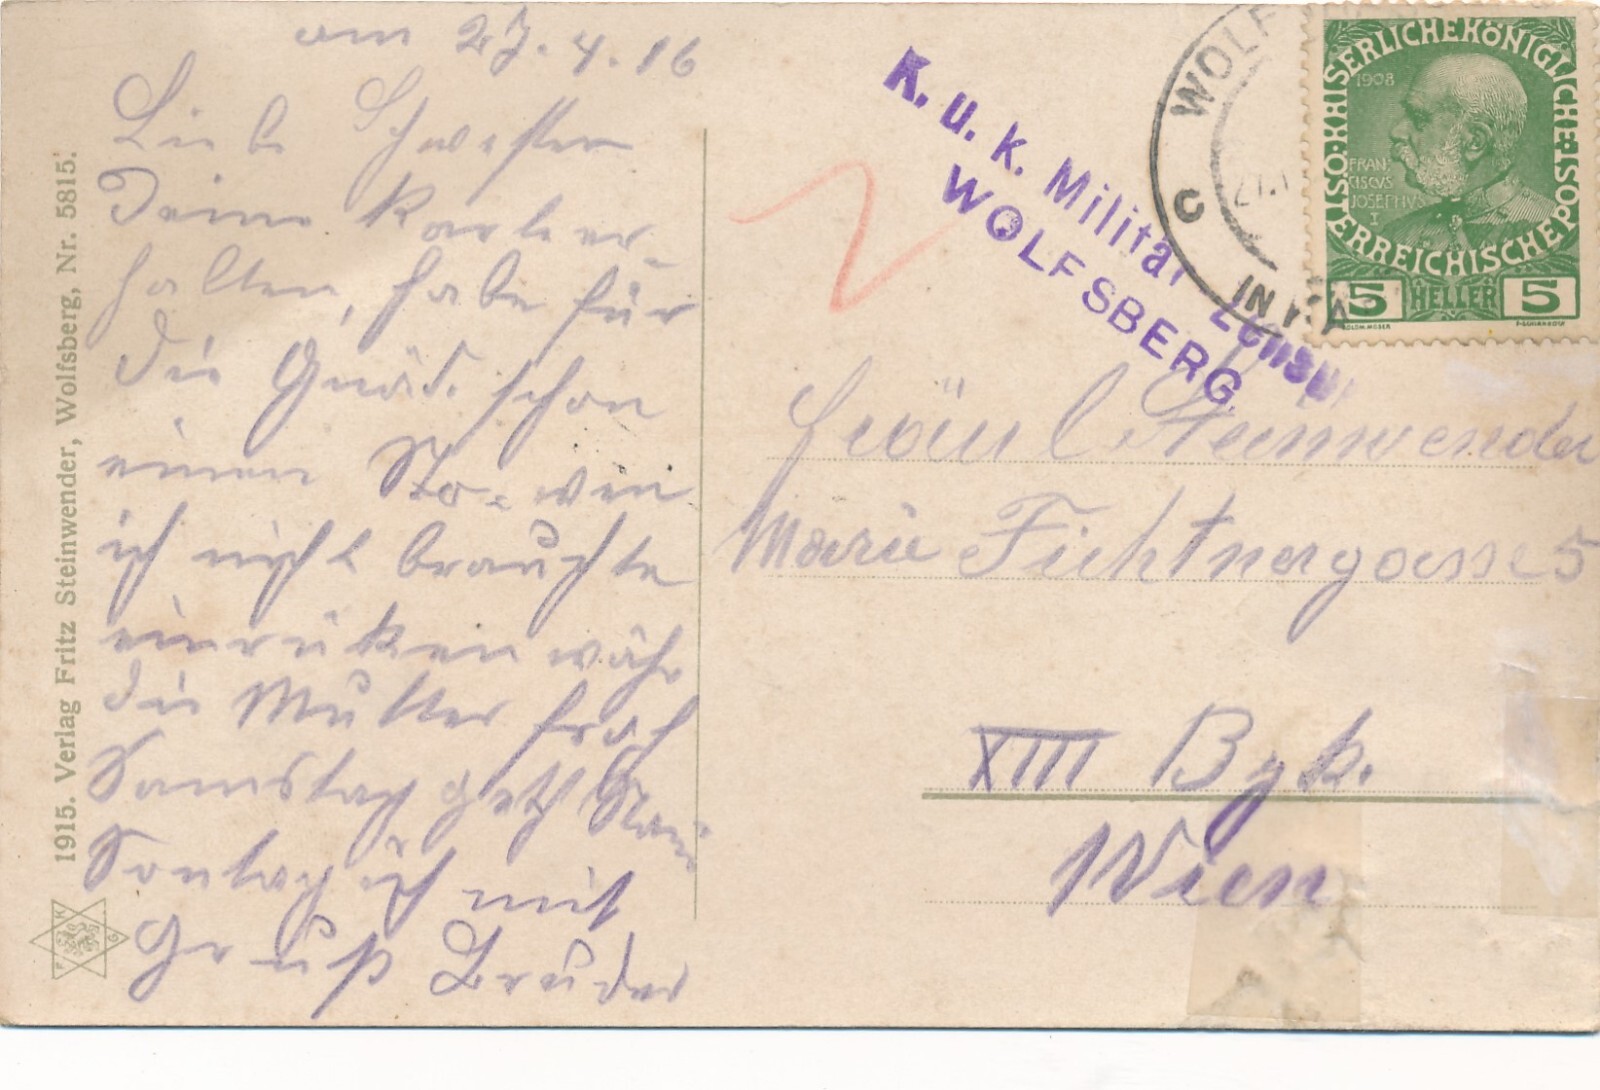 am 27.4.16
Liebe Schwester
Deine Karte er-
halten, habe für
die Gnäd. schon
einen Sto= wen
ich nicht brauchte
einrüken währ
die Mutter froh
Samstag geht
Sontag ich mit
Gruß Bruder
1915. Verlag Fritz Steinwender, Wolfsberg, Nr. 5815.
K. u. k. Militär Zensur
WOLFSBERG
WOLF
C
IN KÄ
KAISERLICHEKÖNIGLICHE
ÖSTERREICHISCHEPOST
1908
FRAN
CISCVS
JOSEPHVS
I
5 HELLER 5
KOLOM. MOSER
F. SCHIRNBÖCK
Fräul Steinwender
Marie Fichtnergasse 5
XIII Bzk.
Wien